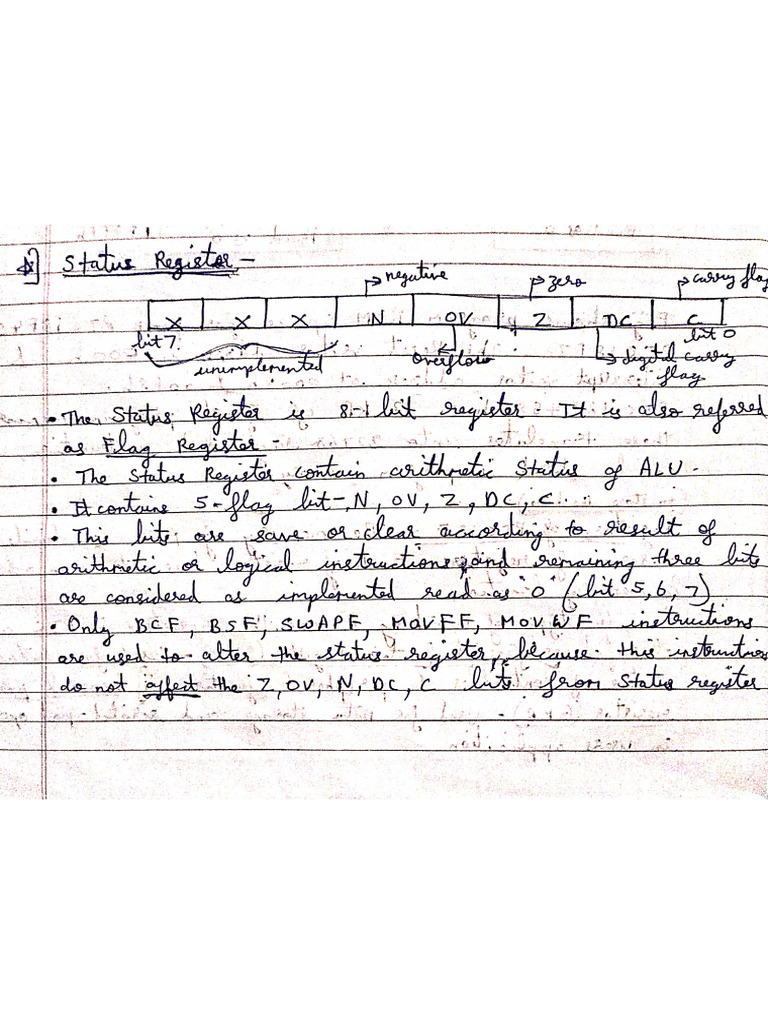 Status Register -
negative zero carry flag
X X X N OV Z DC C
bit 7 bit 0
unimplemented overflow digital carry
flag
• The Status Register is 8-bit register. It is also referred
as Flag Register -
• The Status Register contain arithmetic Status of ALU.
• It contains 5-flag bit-, N, OV, Z, DC, C...
• This bits are save or clear according to result of
arithmetic or logical instructions and remaining three bits
are considered as implemented read as '0' (bit 5, 6, 7)
• Only BCF, BSF, SWAPF, MOVFF, MOVWF instructions
are used to alter the status register, because this instructions
do not affect the Z, OV, N, DC, C bits from Status register